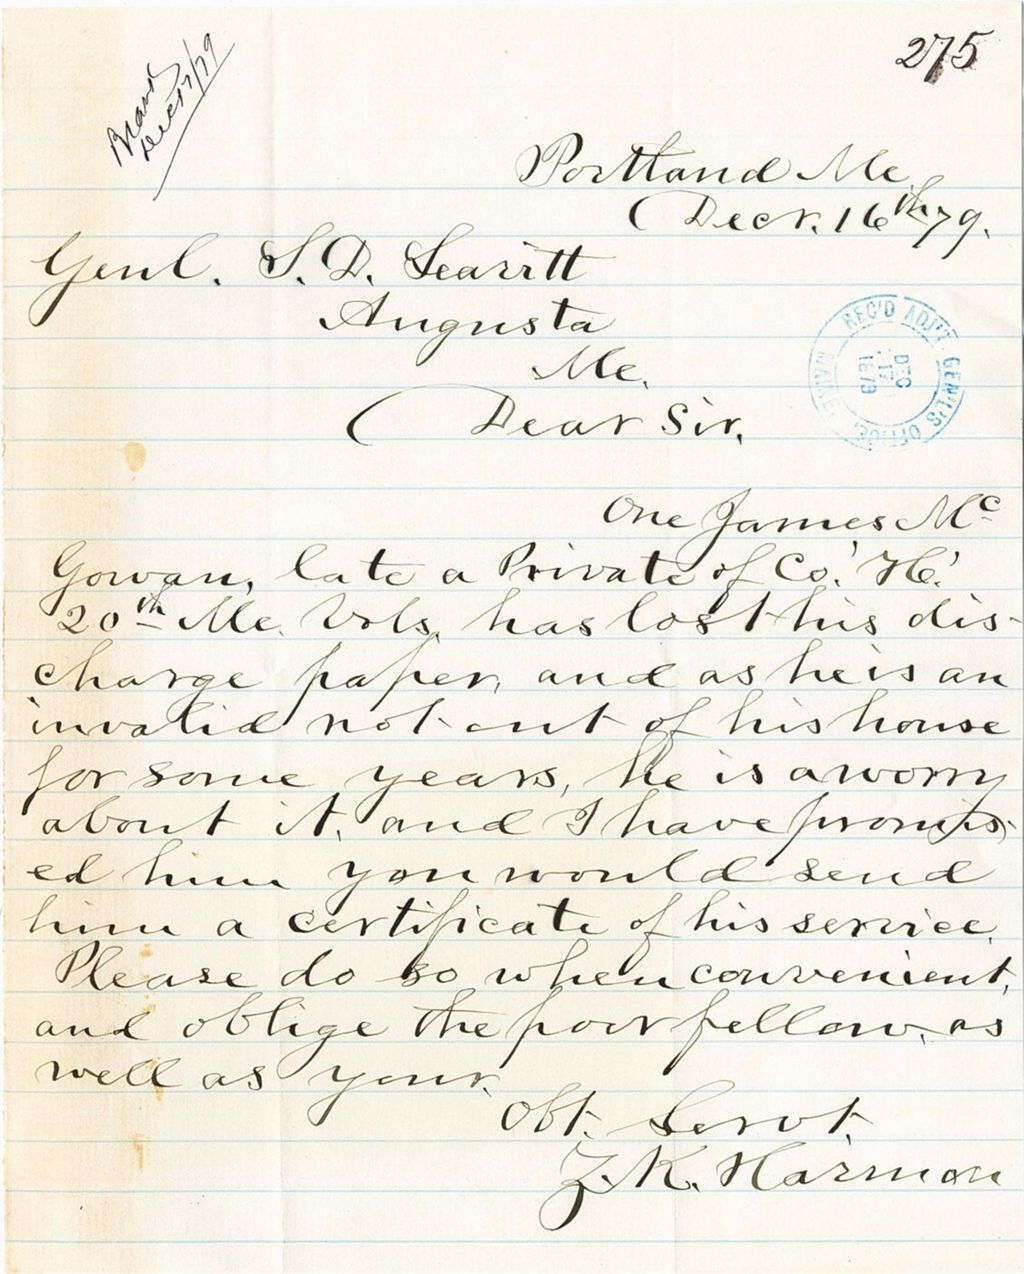 275
Dec 17/79
Portland Me.
Decr. 16th 79.
Genl. S. D. Leavitt
Augusta
Me.
REC'D ADJ'T. GENL'S OFFICE, MAINE
DEC
17
1879
Dear Sir,
One James Mc
Gowan, late a Private of Co. "H"
20th Me. Vols. has lost his dis-
charge paper, and as he is an
invalid not out of his house
for some years, he is a worry
about it, and I have promis-
ed him you would send
him a certificate of his service.
Please do so when convenient,
and oblige the poor fellow, as
well as your.
Obt. Servt.
Z. K. Harmon